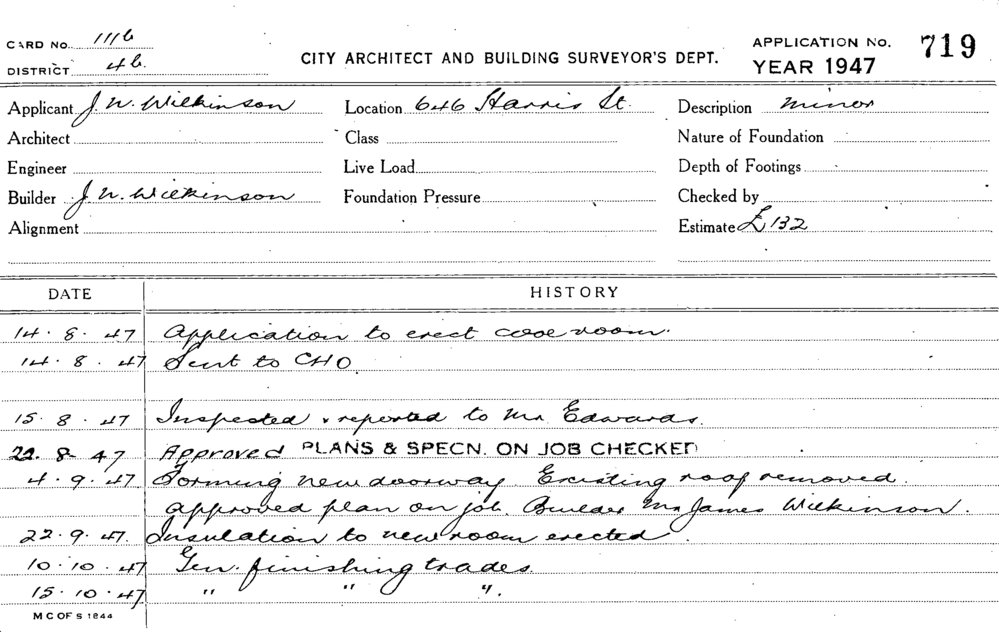 CARD No. 111b
DISTRICT 4b.
CITY ARCHITECT AND BUILDING SURVEYOR'S DEPT.
APPLICATION No. 719
YEAR 1947
Applicant J. W. Wilkinson Location 646 Harris St. Description minor
Architect Class Nature of Foundation
Engineer Live Load Depth of Footings
Builder J. W. Wilkinson Foundation Pressure Checked by
Alignment Estimate £132
DATE HISTORY
14. 8. 47 Application to erect cool room.
14. 8. 47 Sent to CHO
15. 8. 47 Inspected & reported to Mr Edwards.
22. 8- 47 Approved PLANS & SPECN. ON JOB CHECKED
4. 9. 47 Forming new doorway Existing roof removed.
approved plan on job. Builder Mr James Wilkinson.
22. 9. 47. Insulation to new room erected.
10. 10. 47 Gen. finishing trades.
15. 10. 47 " " ".
M C OF S 1844